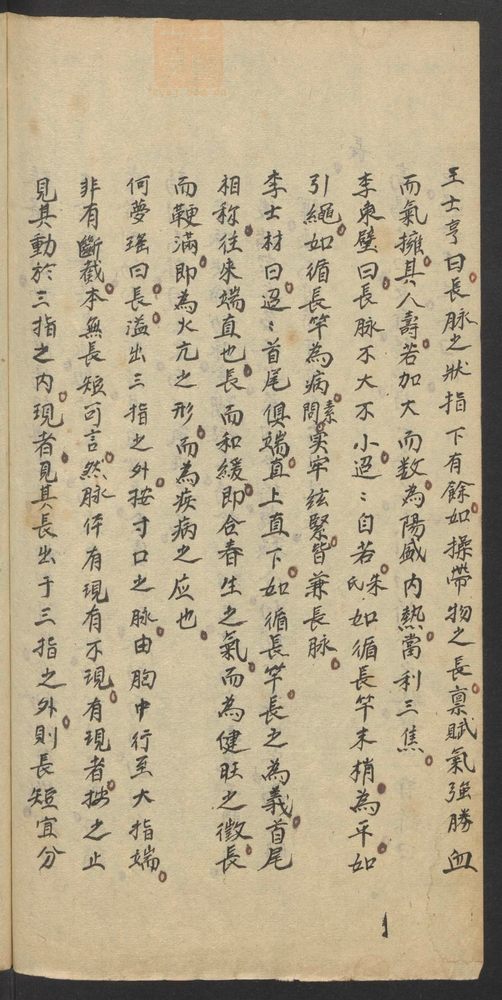 王士亨曰長脉之狀指下有餘如操帶物之長稟賦氣強勝血
而氣擁其人壽若加大而数為陽盛内熱當利三焦
李東壁曰長脉不大不小迢〻自若朱氏如循長竿末梢為平如
引繩如循長竿為病素問实牢絃緊皆兼長脉
李士材曰迢〻首尾俱端直上直下如循長竿長之為義首尾
相称往來端直也長而和緩即合春生之氣而為健旺之徵長
而鞕滿即為火亢之形而為疾病之应也
何夢瑶曰長溢出三指之外按寸口之脉由胸中行至大指端
非有斷截本無長短可言然脉体有現有不現有現者按之止
見其動於三指之内現者見其長出于三指之外則長短宜分